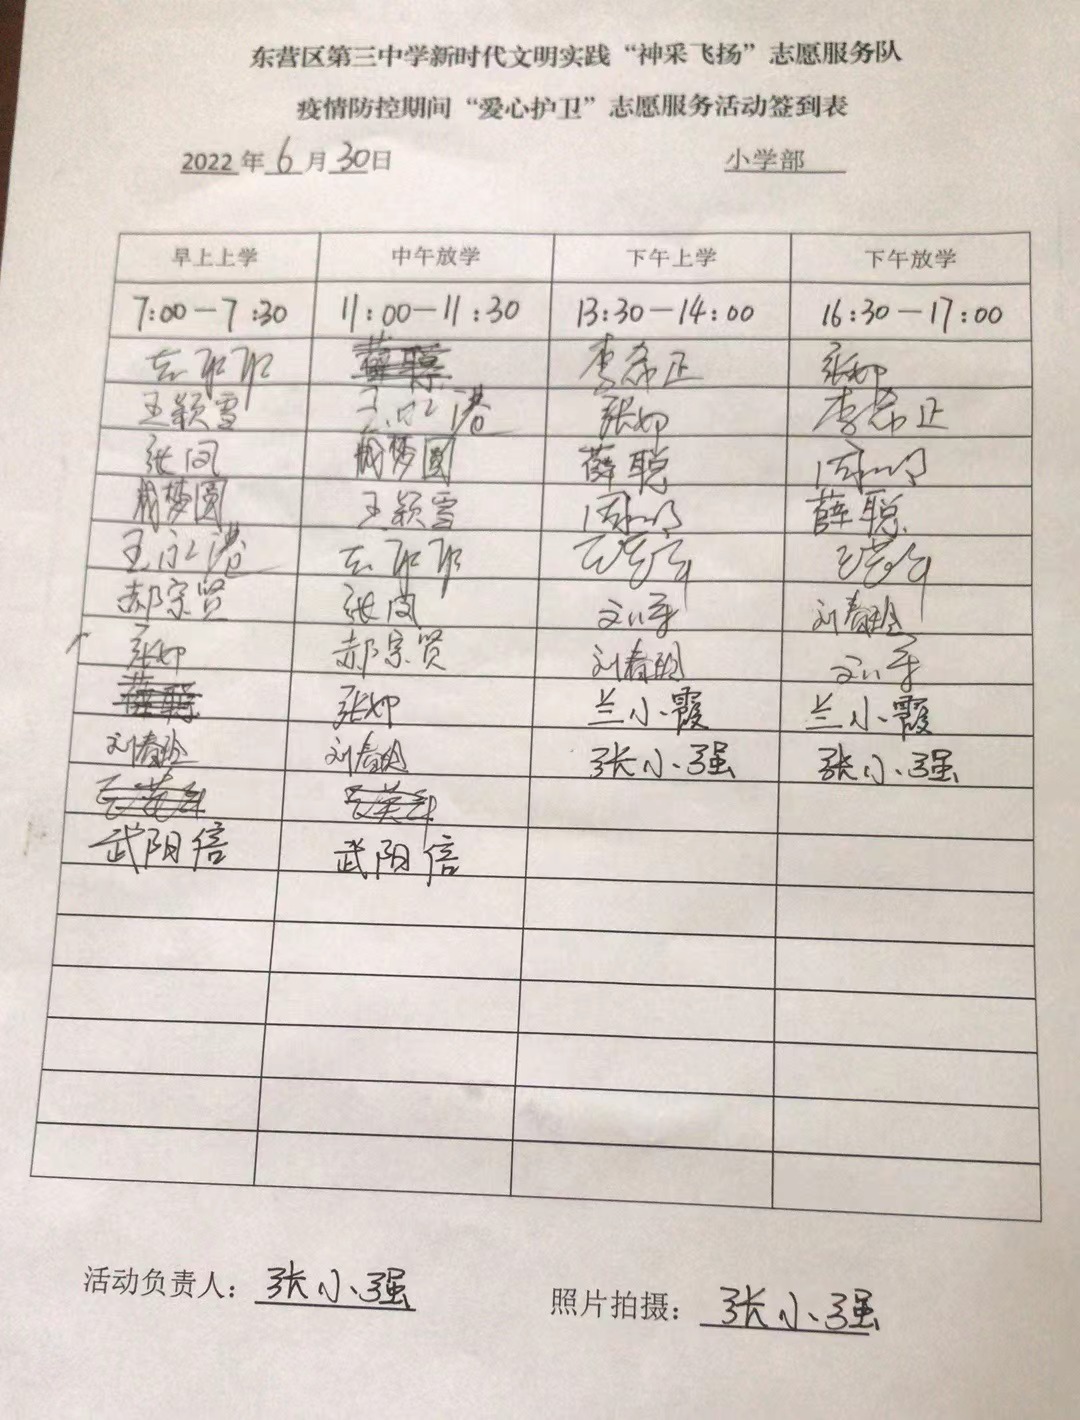 东营区第三中学新时代文明实践“神采飞扬”志愿服务队
疫情防控期间“爱心护卫”志愿服务活动签到表
2022年6月30日 小学部
早上上学 中午放学 下午上学 下午放学
7:00-7:30 11:00-11:30 13:30-14:00 16:30-17:00
薛聪 李希正 张如
王颖雪 王永港 张如 李希正
张凤 周梦圆 薛聪
周梦圆 王颖雪 薛聪
王永港
郝宗贤 张凤 刘春玲
张如 郝宗贤 刘春玲
薛聪 张如 兰小霞 兰小霞
刘春玲 刘春玲 张小强 张小强
武阳倍 武阳倍
活动负责人：张小强 照片拍摄：张小强